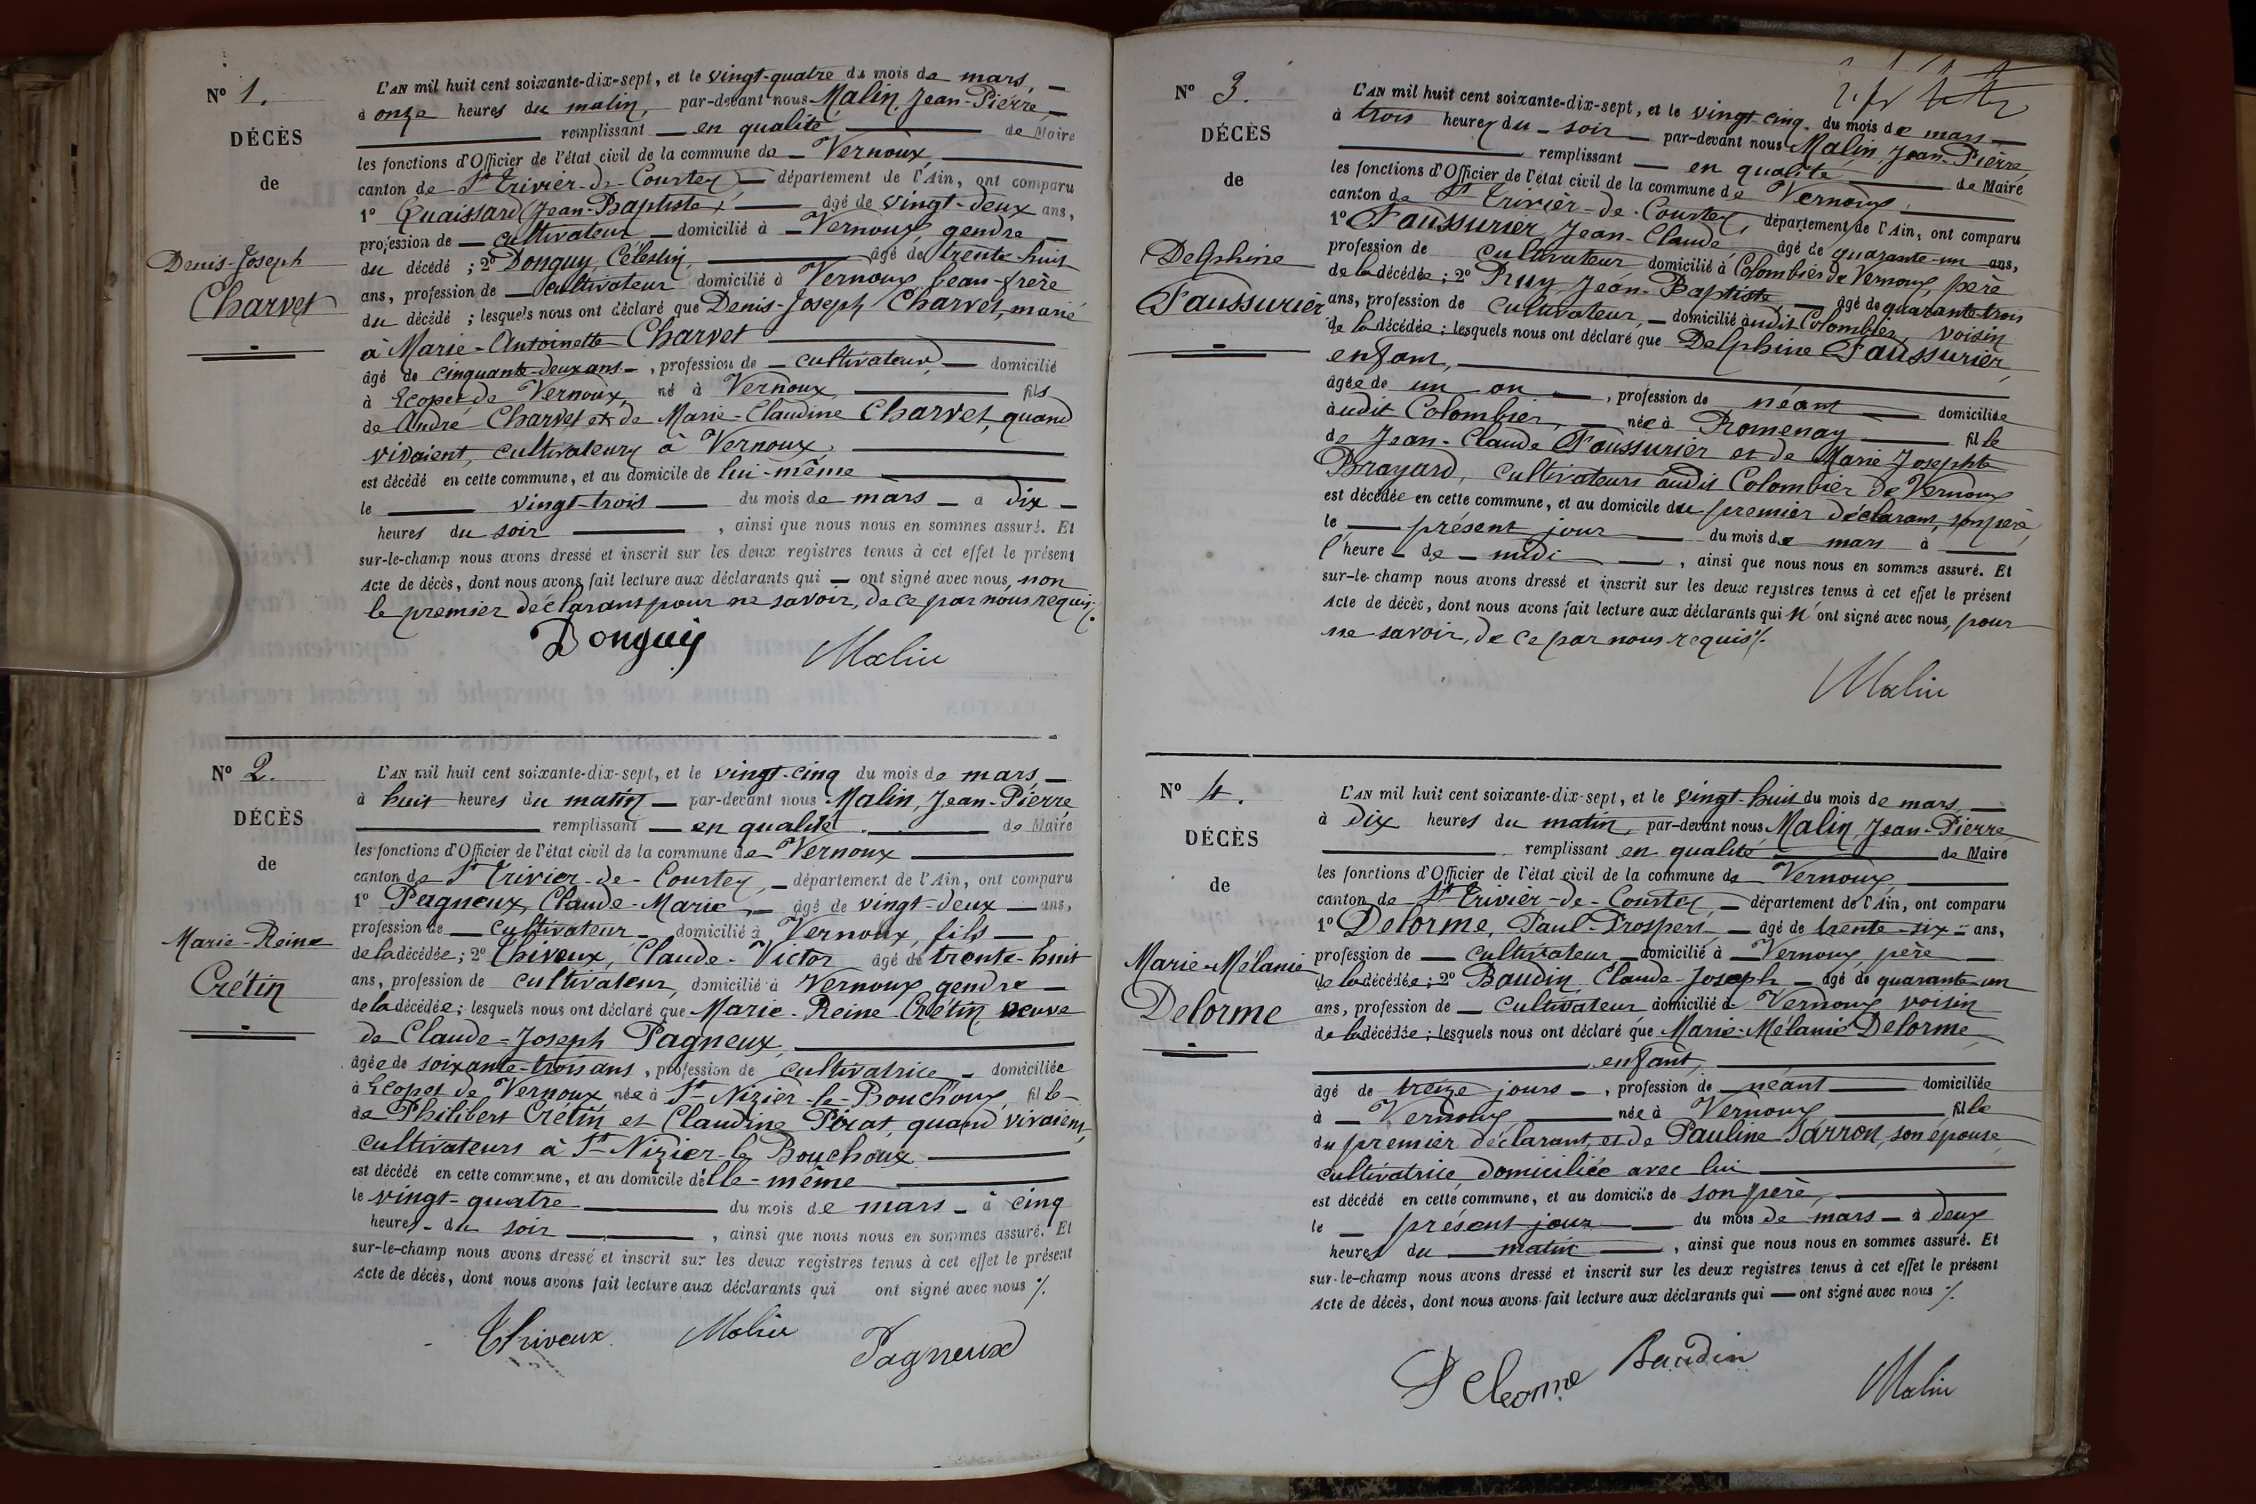 N° 1.
DÉCÈS
de
Denis-Joseph
Charvet
L'AN mil huit cent soixante-dix-sept, et le vingt-quatre du mois de mars,
à onze heures du matin, par-devant nous Malin, Jean-Pierre,
remplissant en qualité de Maire
les fonctions d'Officier de l'état civil de la commune de Vernoux,
canton de St Trivier-de-Courtes, département de l'Ain, ont comparu
1° Quaissard Jean-Baptiste, âgé de vingt-deux ans,
profession de cultivateur domicilié à Vernoux, gendre
du décédé ; 2° Donguy, Célestin, âgé de trente-huit
ans, profession de cultivateur domicilié à Vernoux beau-frère
du décédé ; lesquels nous ont déclaré que Denis-Joseph Charvet, marié
à Marie-Antoinette Charvet
âgé de cinquante-deux ans, profession de cultivateur, domicilié
à Ecopet de Vernoux né à Vernoux fils
de André Charvet et de Marie-Claudine Charvet, quand
vivaient, cultivateurs à Vernoux,
est décédé en cette commune, et au domicile de lui-même
le vingt-trois du mois de mars à dix
heures du soir, ainsi que nous nous en sommes assuré. Et
sur-le-champ nous avons dressé et inscrit sur les deux registres tenus à cet effet le présent
Acte de décès, dont nous avons fait lecture aux déclarants qui ont signé avec nous, non
le premier déclarant pour ne savoir, de ce par nous requis.
Donguy Malin
N° 2.
DÉCÈS
de
Marie-Reine
Crétin
L'AN mil huit cent soixante-dix-sept, et le vingt-cinq du mois de mars,
à huit heures du matin par-devant nous Malin, Jean-Pierre
remplissant en qualité de Maire
les fonctions d'Officier de l'état civil de la commune de Vernoux
canton de St Trivier-de-Courtes, département de l'Ain, ont comparu
1° Pagneux, Claude-Marie, âgé de vingt-deux ans,
profession de cultivateur, domicilié à Vernoux, fils
de la décédée ; 2° Thiveux, Claude-Victor âgé de trente-huit
ans, profession de cultivateur, domicilié à Vernoux gendre
de la décédée ; lesquels nous ont déclaré que Marie-Reine Crétin veuve
de Claude-Joseph Pagneux,
âgée de soixante-trois ans, profession de cultivatrice domiciliée
à Ecopet de Vernoux née à St Nizier-le-Bouchoux, fille
de Philibert Crétin et Claudine Pirat, quand vivaient,
cultivateurs à St Nizier-le Bouchoux
est décédé en cette commune, et au domicile d'elle-même
le vingt-quatre du mois de mars à cinq
heures du soir, ainsi que nous nous en sommes assuré. Et
sur-le-champ nous avons dressé et inscrit sur les deux registres tenus à cet effet le présent
Acte de décès, dont nous avons fait lecture aux déclarants qui ont signé avec nous ./.
Thiveux Malin Pagneux
N° 3.
DÉCÈS
de
Delphine
Faussurier
L'AN mil huit cent soixante-dix-sept, et le vingt-cinq du mois de mars
à trois heures du soir par-devant nous Malin, Jean-Pierre,
remplissant en qualité de Maire
les fonctions d'Officier de l'état civil de la commune de Vernoux,
canton de St Trivier-de-Courtes, département de l'Ain, ont comparu
1° Faussurier, Jean-Claude, âgé de quarante-un ans,
profession de cultivateur domicilié à Colombier de Vernoux, père
de la décédée ; 2° Pruy, Jean-Baptiste, âgé de quarante-trois
ans, profession de cultivateur, domicilié audit Colombier, voisin
de la décédée ; lesquels nous ont déclaré que Delphine Faussurier,
enfant,
âgée de un an, profession de néant domiciliée
audit Colombier, née à Romenay fille
de Jean-Claude Faussurier et de Marie Josephte
Brayard, cultivateurs audit Colombier de Vernoux
est décédée en cette commune, et au domicile du premier déclarant, son père,
le présent jour du mois de mars à
l'heure de midi, ainsi que nous nous en sommes assuré. Et
sur-le-champ nous avons dressé et inscrit sur les deux registres tenus à cet effet le présent
Acte de décès, dont nous avons fait lecture aux déclarants qui n'ont signé avec nous, pour
ne savoir, de ce par nous requis ./.
Malin
N° 4.
DÉCÈS
de
Marie-Mélanie
Delorme
L'AN mil huit cent soixante-dix-sept, et le vingt-huit du mois de mars,
à dix heures du matin, par-devant nous Malin, Jean-Pierre
remplissant en qualité de Maire
les fonctions d'Officier de l'état civil de la commune de Vernoux,
canton de St Trivier-de-Courtes, département de l'Ain, ont comparu
1° Delorme, Paul-Prosper, âgé de trente-six ans,
profession de cultivateur domicilié à Vernoux père
de la décédée ; 2° Baudin, Claude-Joseph âgé de quarante-un
ans, profession de cultivateur domicilié à Vernoux voisin
de la décédée ; lesquels nous ont déclaré que Marie-Mélanie Delorme,
enfant,
âgé de treize jours, profession de néant domiciliée
à Vernoux née à Vernoux fille
du premier déclarant, et de Pauline Jarron, son épouse,
cultivatrice, domiciliée avec lui
est décédé en cette commune, et au domicile de son père,
le présent jour du mois de mars à deux
heures du matin, ainsi que nous nous en sommes assuré. Et
sur-le-champ nous avons dressé et inscrit sur les deux registres tenus à cet effet le présent
Acte de décès, dont nous avons fait lecture aux déclarants qui ont signé avec nous ./.
Delorme Baudin Malin